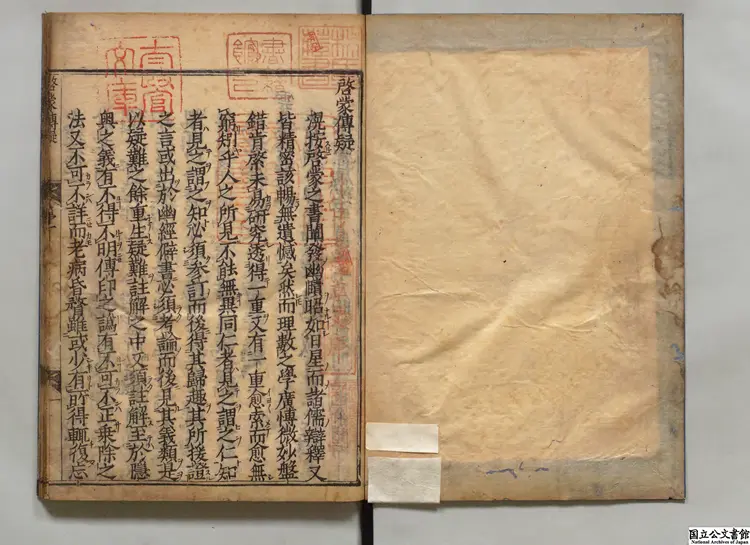 啓蒙傳疑
滉按啓蒙之書闡發幽賾昭如日星而諸儒辯釋又
皆精密該暢無遺憾矣然而理數之學廣愽微妙盤
錯肯綮未易研究透得一重又有一重愈索而愈無
窮矧乎人之所見不能無異同仁者見之謂之仁知
者見之謂之知必須參訂而後得其歸趣其所援證
之言或出於幽經僻書必須考論而後見其義類是
以疑難之餘重生疑難註解之中又須註解至於隱
奧之義有不得不明傳印之譌有不可不正乗除之
法又不可不詳而老病昏瞀雖或少有所得輒復忘
啓蒙傳疑
国立公文書館
National Archives of Japan